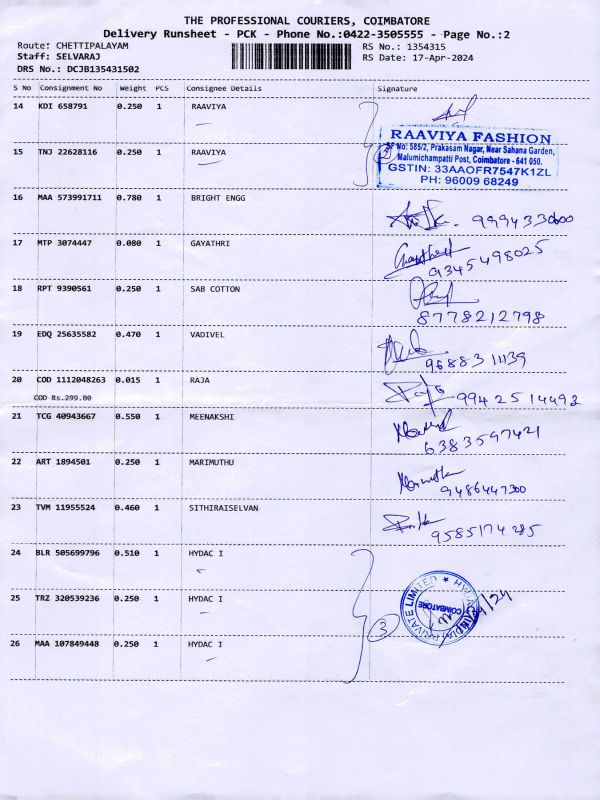 THE PROFESSIONAL COURIERS, COIMBATORE
Delivery Runsheet - PCK - Phone No.:0422-3505555 - Page No.:2
Route: CHETTIPALAYAM
RS No.: 1354315
Staff: SELVARAJ
RS Date: 17-Apr-2024
DRS No.: DCJB135431502
S No Consignment No Weight PCS Consignee Details Signature
14 KDI 658791 0.250 1 RAAVIYA
15 TNJ 22628116 0.250 1 RAAVIYA
RAAVIYA FASHION
SF No: 585/2, Prakasam Nagar, Near Sahana Garden,
Malumichampatti Post, Coimbatore - 641 050.
GSTIN: 33AAOFR7547K1ZL
PH: 96009 68249
16 MAA 573991711 0.780 1 BRIGHT ENGG
17 MTP 3074447 0.080 1 GAYATHRI
9345498025
18 RPT 9390561 0.250 1 SAB COTTON
8778212798
19 EDQ 25635582 0.470 1 VADIVEL
20 COD 1112048263 0.015 1 RAJA
COD Rs.299.00
21 TCG 40943667 0.550 1 MEENAKSHI
6383597421
22 ART 1894501 0.250 1 MARIMUTHU
9486447300
23 TVM 11955524 0.460 1 SITHIRAISELVAN
9585174285
24 BLR 505699796 0.510 1 HYDAC I
25 TRZ 320539236 0.250 1 HYDAC I
3
PRIVATE LIMITED
COIMBATORE
26 MAA 107849448 0.250 1 HYDAC I